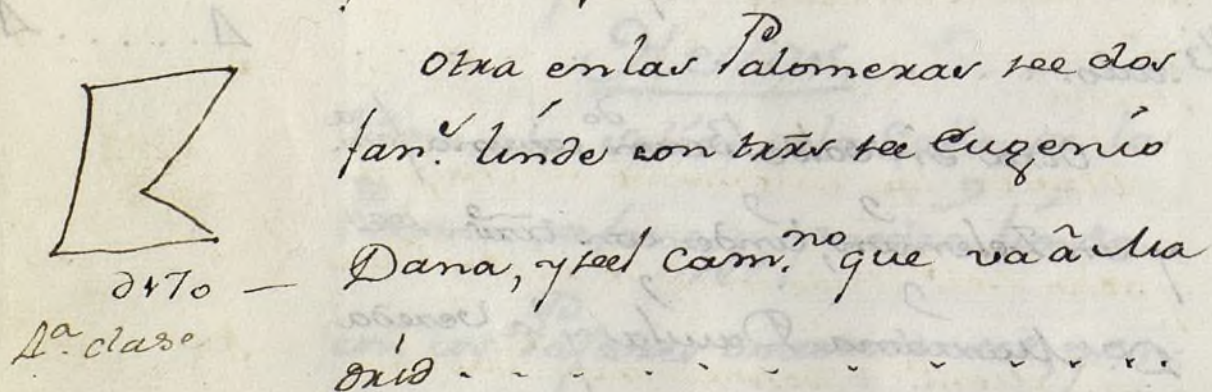 Otra en las Palomeras de dos
fan.ˢ linde con trr̃s de Eugenio
Dana, y del Cam.ⁿᵒ que va â Ma
drid . . . . . . . . . .
dho —
4.ª clase